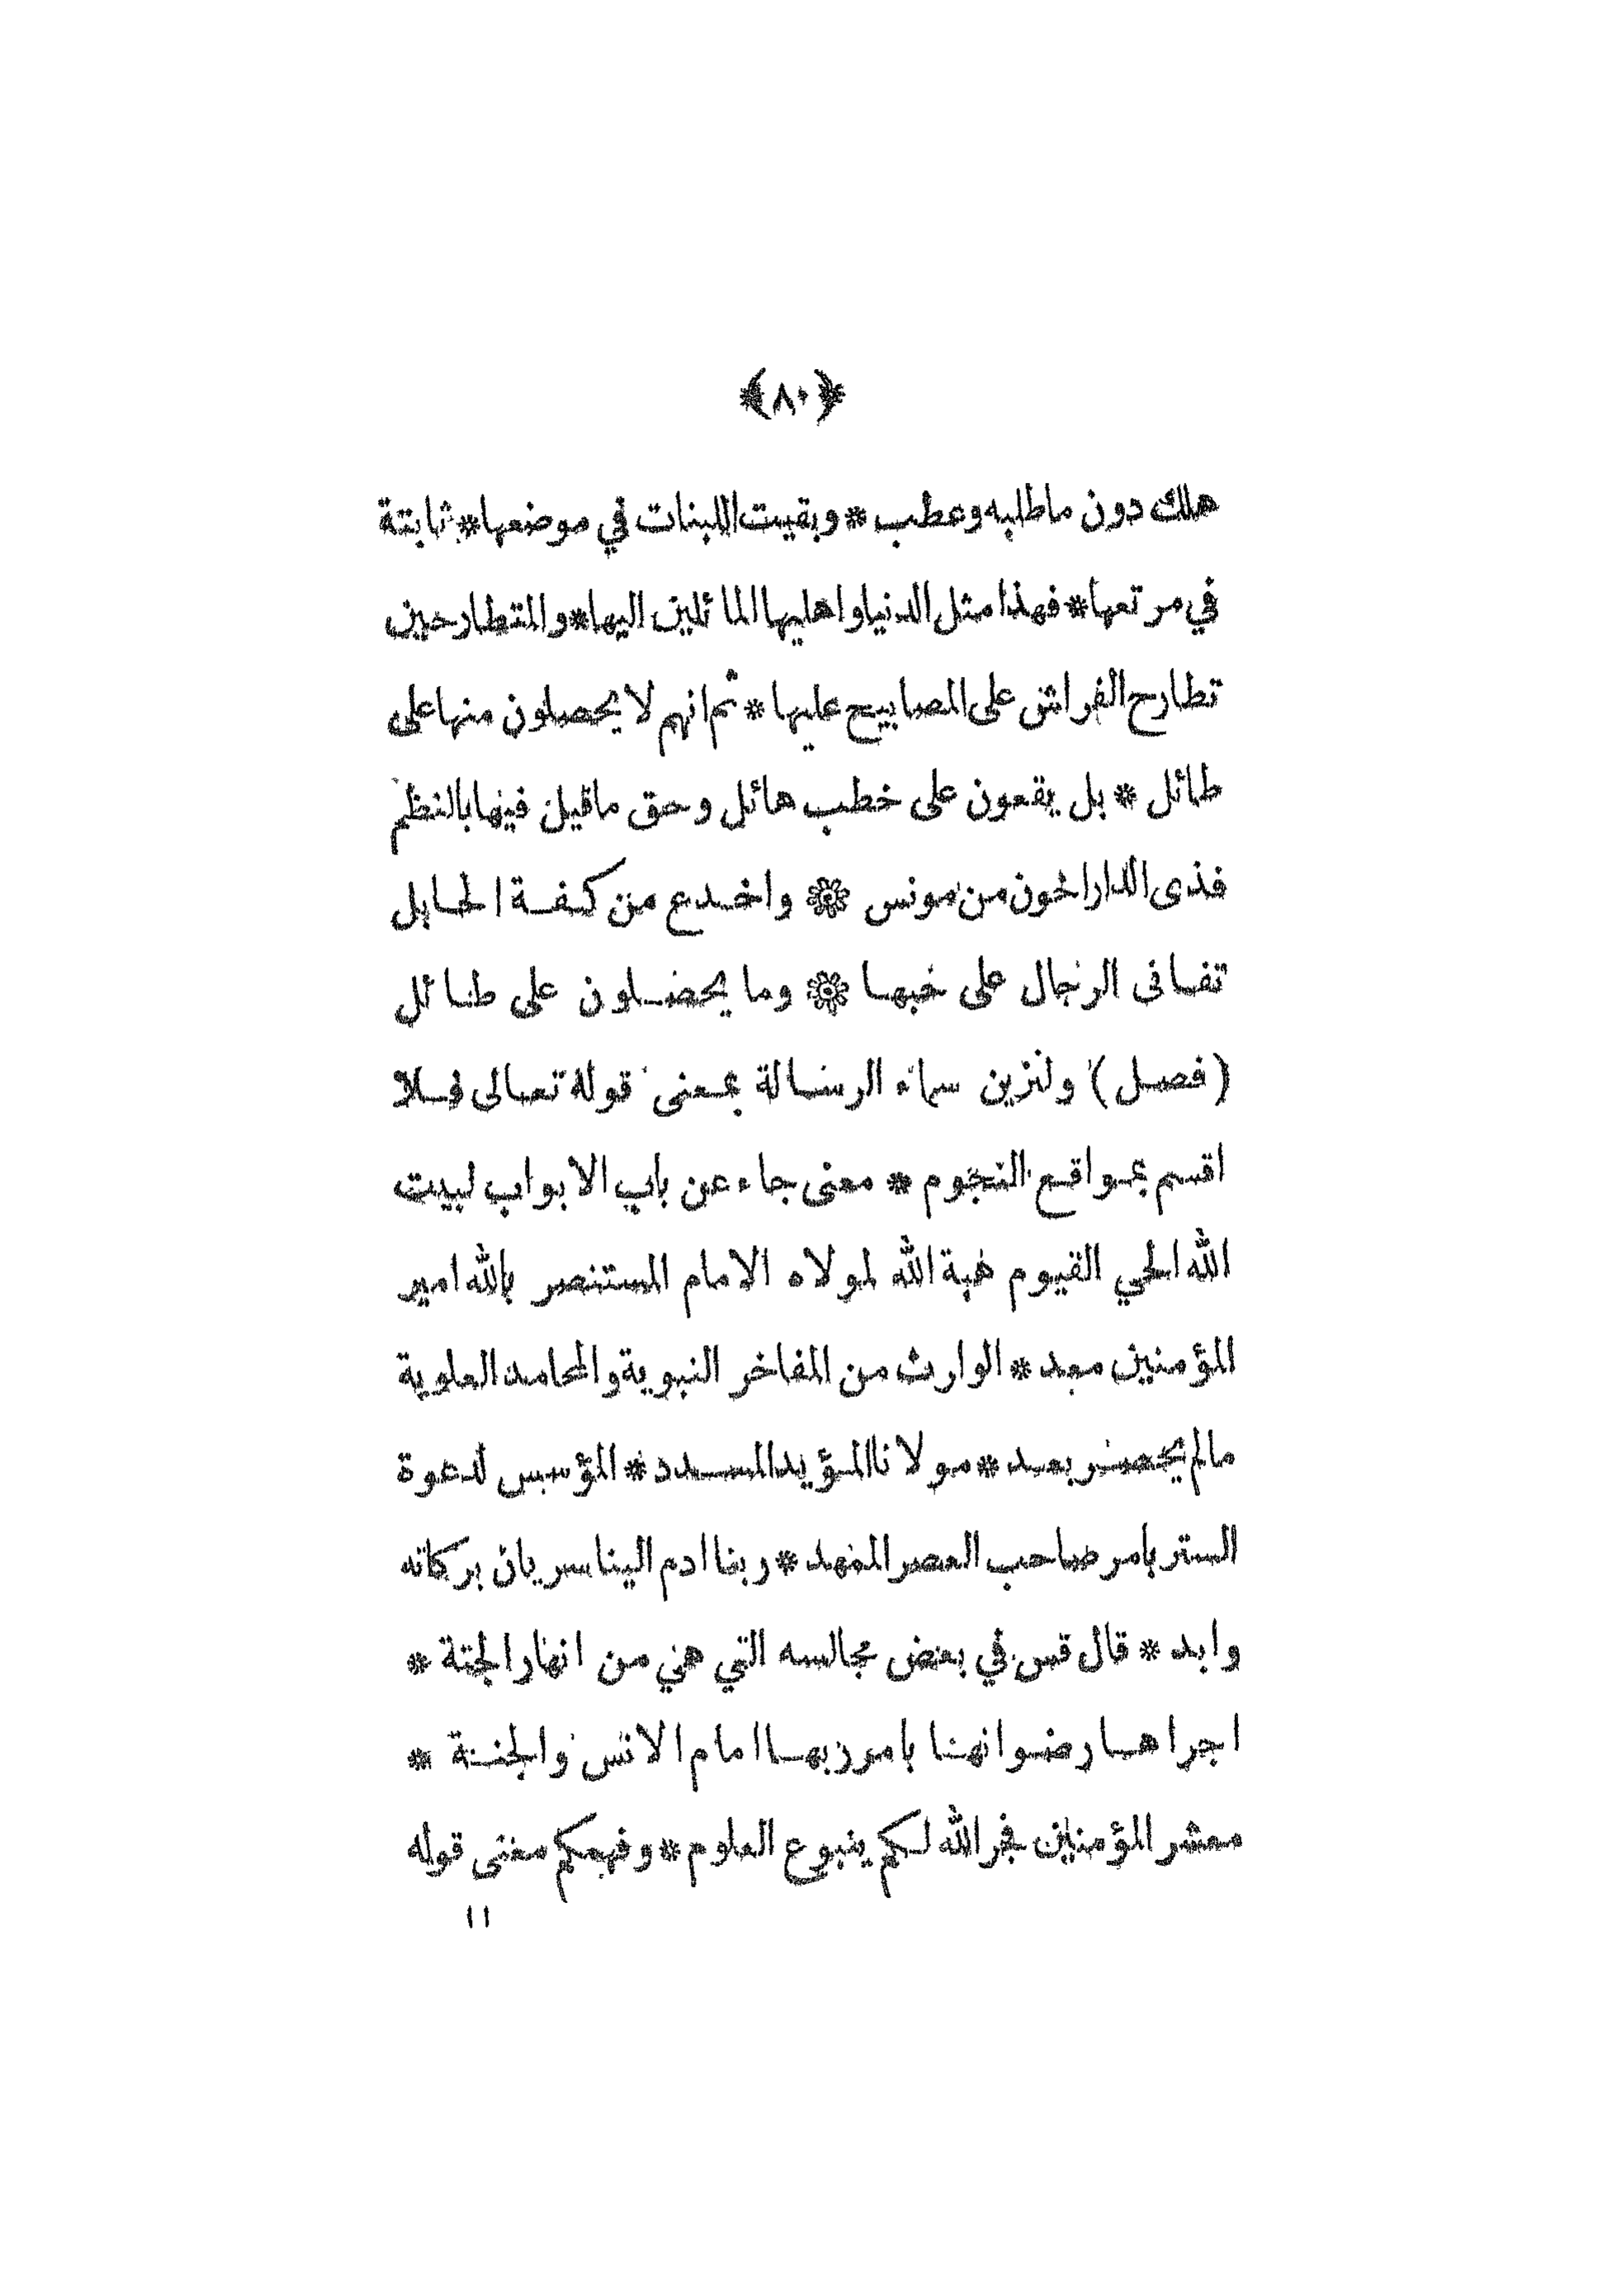 ﴿٨٠﴾
هلك دون ماطلبه وعطب * وبقيت اللبنات في موضعها * ثابتة
في مرتعها * فهذا مثل الدنيا واهليها المائلين اليها * والمتطارحين
تطارح الفراش على المصابيح عليها * ثم انهم لا يحصلون منها على
طائل * بل يقعون على خطب هائل وحق ماقيل فيها بالنظم
فذى الدار اخون من مونس ۞ واخدع من كفة الحابل
تفانى الرجال على حبها ۞ وما يحصلون على طائل
(فصل) ولنزين سماء الرسالة بمعنى قوله تعالى فلا
اقسم بمواقع النجوم * معنى جاء عن باب الابواب لبيت
الله الحي القيوم هبة الله لمولاه الامام المستنصر بالله امير
المؤمنين معد * الوارث من المفاخر النبوية والمحامد العلوية
مالم يحصر بعد * مولانا المؤيد المسدد * المؤسس لدعوة
الستر بامر صاحب العصر الممهد * ربنا ادم الينا سريان بركاته
وابد * قال قس في بعض مجالسه التي هي من انهار الجنة *
اجراها رضوانهنا بامر ربها امام الانس والجنة *
معشر المؤمنين فجر الله لكم ينبوع العلوم * وفهمكم معنى قوله
١١